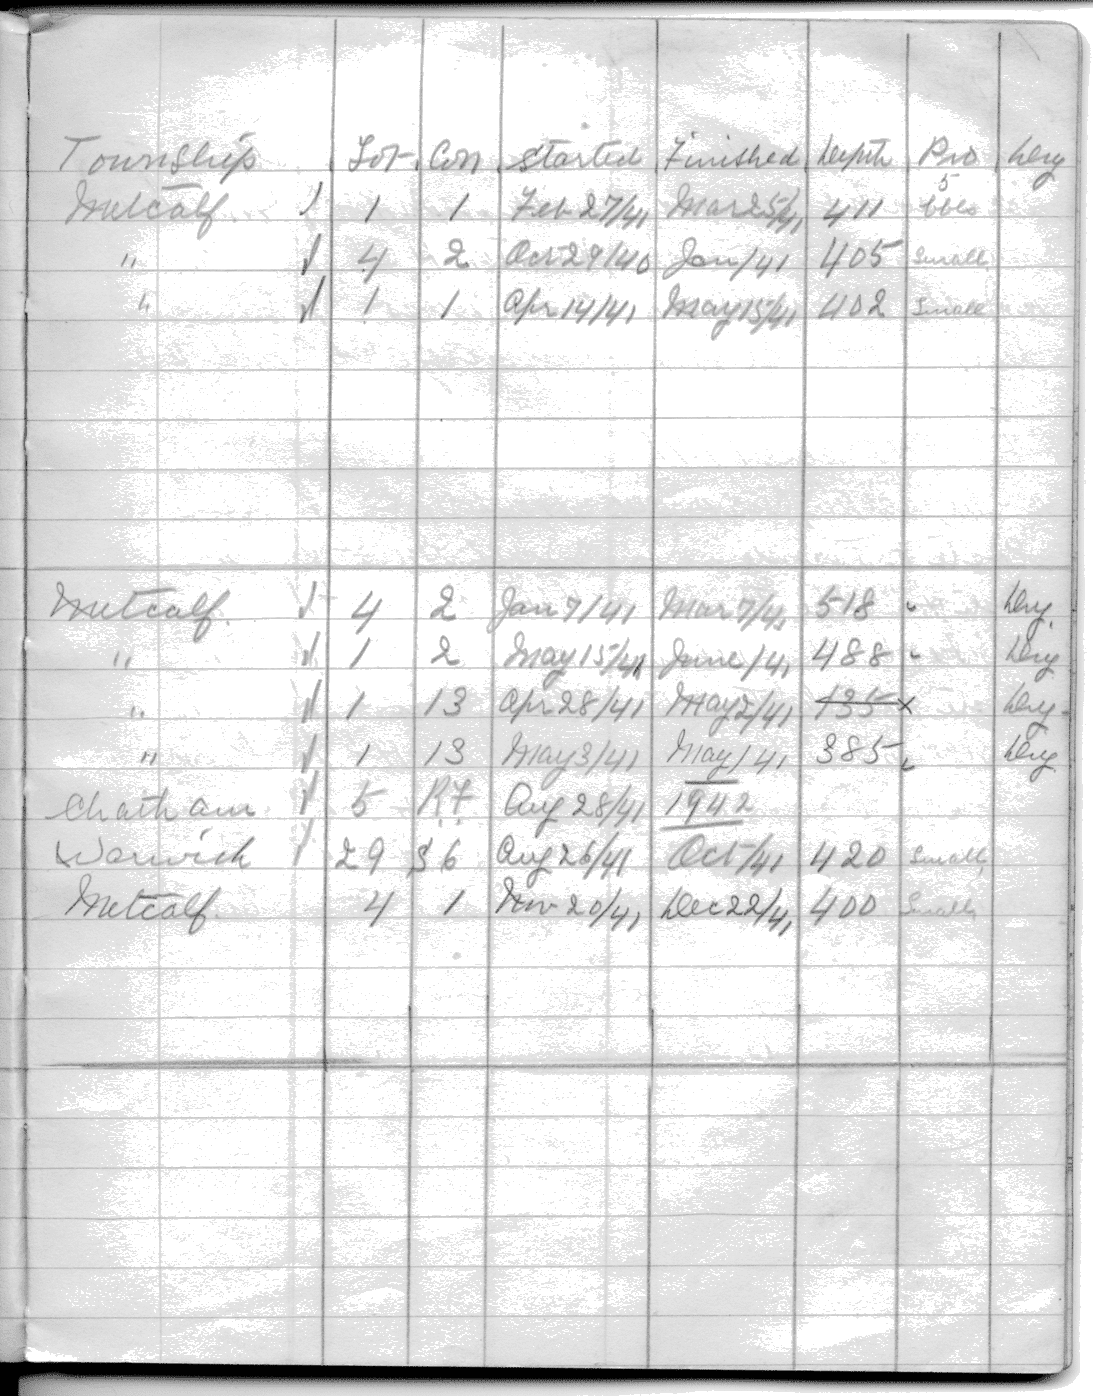 Township Lot Con Started Finished Depth Pro Dry
Metcalf ✓ 1 1 Feb 27/41 Mar 25/41 411 5 bbls
" ✓ 4 2 Oct 29/40 Jan/41 405 Small
" ✓ 1 1 Apr 14/41 May 15/41 402 Small
Metcalf. ✓ 4 2 Jan 7/41 Mar 7/41 518 Dry.
" ✓ 1 2 May 15/41 June/41 488 Dry
" ✓ 1 13 Apr 28/41 May 2/41 135 x Dry-
" ✓ 1 13 May 3/41 May/41 385 Dry
Chatham ✓ 5 Aug 28/41 1942
Warwick ✓ 29 S 6 Aug 26/41 Oct/41 420 Small
Metcalf. 4 1 Nov 20/41 Dec 22/41 400 Small